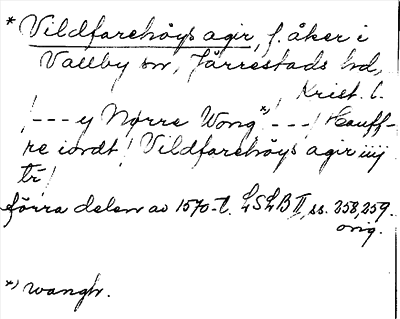 * Vildfarehöys agir, f. åker i
Vallby sn, Järrestads hd,
Krist. l.
/--- y Nørre Wong *) ---/ Hauff-
re iordt / Vildfarehöys agir iiij
tr /
förra delen av 1570-t. LSLB II, ss. 258, 259.
orig.
*) wangh.